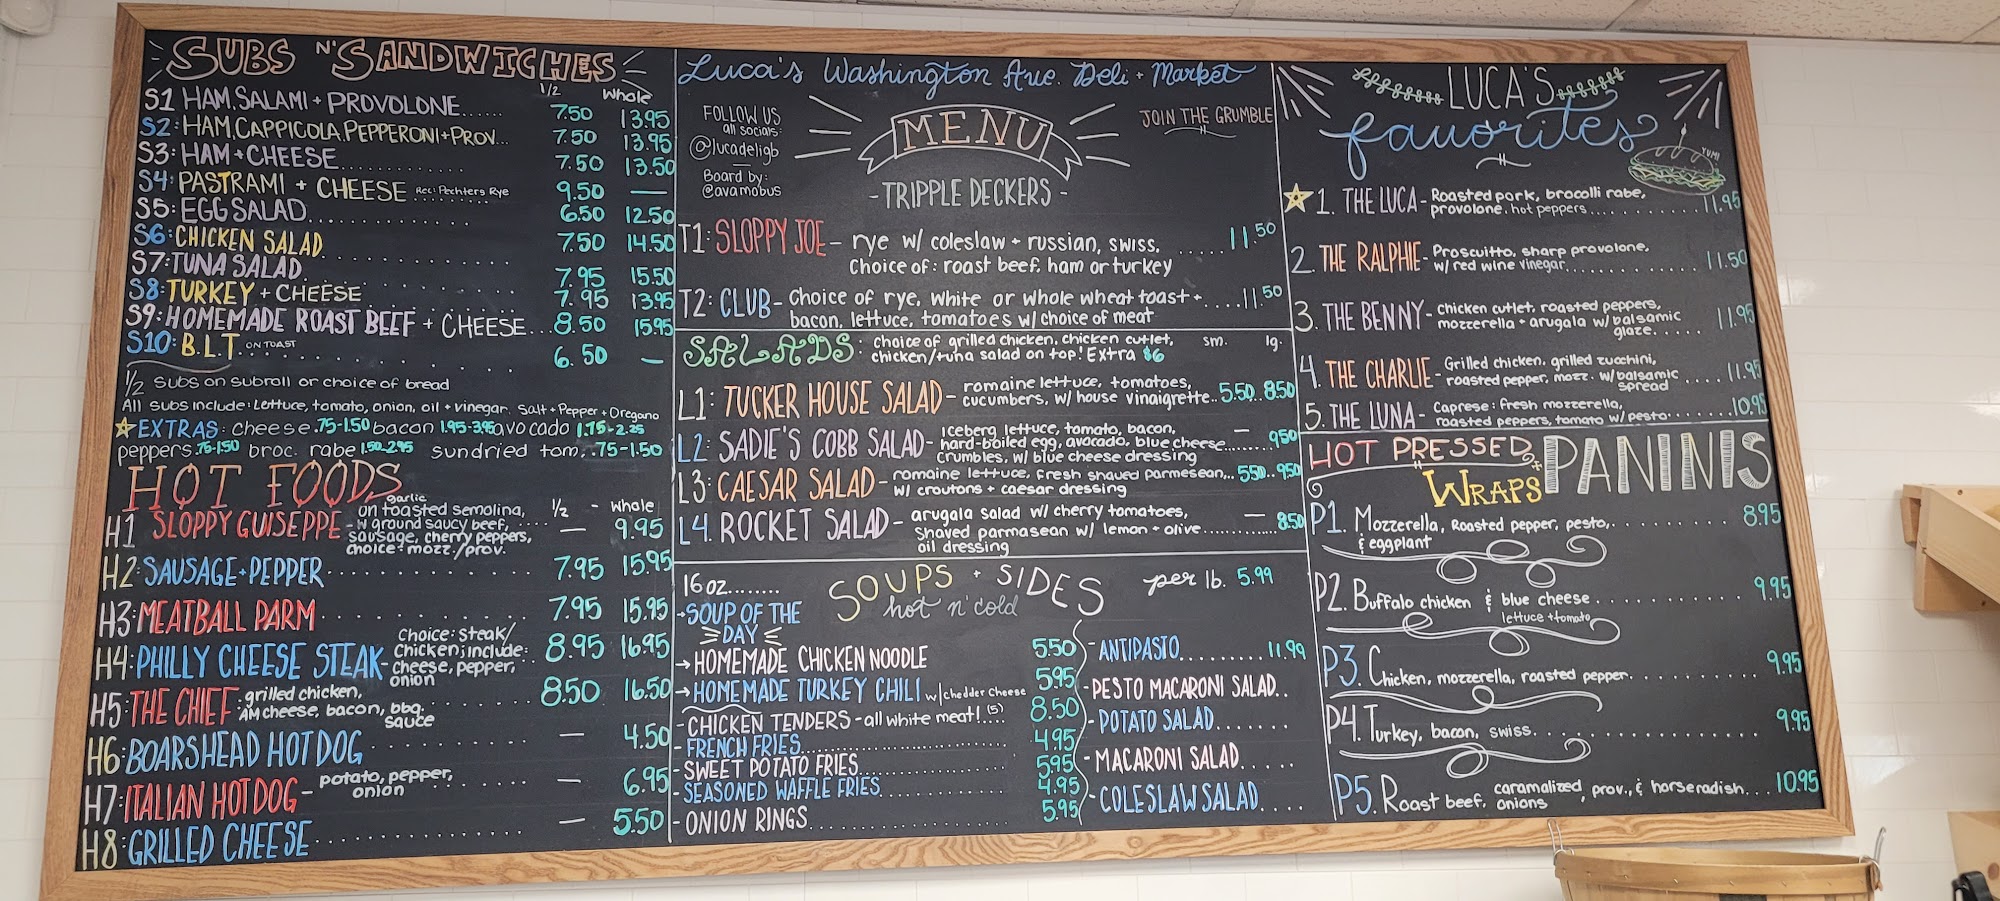 SUBS N' SANDWICHES
1/2 Whole
S1 HAM, SALAMI + PROVOLONE...... 7.50 13.95
S2: HAM, CAPPICOLA, PEPPERONI + PROV... 7.50 13.95
S3: HAM + CHEESE............ 7.50 13.50
S4: PASTRAMI + CHEESE Rec: Pechters Rye 9.50 —
S5: EGG SALAD............ 6.50 12.50
S6: CHICKEN SALAD............ 7.50 14.50
S7: TUNA SALAD............ 7.95 15.50
S8: TURKEY + CHEESE............ 7.95 13.95
S9: HOMEMADE ROAST BEEF + CHEESE... 8.50 15.95
S10: B.L.T ON TOAST............ 6.50 —
1/2 Subs on subroll or choice of bread
All subs include: Lettuce, tomato, onion, oil + vinegar, Salt + Pepper + Oregano
EXTRAS: cheese .75-1.50 bacon 1.95-3.95 avocado 1.75-2.25
peppers .75-1.50 broc. rabe 1.50-2.95 sundried tom. .75-1.50
HOT FOODS
1/2 - whole
H1 SLOPPY GUISEPPE - on toasted garlic semolina,
w ground saucy beef, ...... — 9.95
sausage, cherry peppers,
choice: mozz./prov.
H2: SAUSAGE + PEPPER............ 7.95 15.95
H3: MEATBALL PARM............ 7.95 15.95
H4: PHILLY CHEESE STEAK - Choice: steak/
chicken; include: .. 8.95 16.95
cheese, pepper,
onion
H5: THE CHIEF: grilled chicken, ...... 8.50 16.50
AM cheese, bacon, bbq.
sauce
H6: BOARSHEAD HOT DOG............ — 4.50
H7: ITALIAN HOT DOG - potato, pepper, ...... — 6.95
onion
H8: GRILLED CHEESE............ — 5.50
Luca's Washington Ave. Deli + Market
FOLLOW US
all socials:
@lucadeligb
Board by:
@avamobus
MENU
JOIN THE GRUMBLE
- TRIPPLE DECKERS -
T1: SLOPPY JOE - rye w/ coleslaw + russian, swiss, ...... 11.50
Choice of: roast beef, ham or turkey
T2: CLUB - Choice of rye, white or whole wheat toast + .... 11.50
bacon, lettuce, tomatoes w/ choice of meat
SALADS: choice of grilled chicken, chicken cutlet, sm. lg.
chicken/tuna salad on top! Extra $6
L1: TUCKER HOUSE SALAD - romaine lettuce, tomatoes,
cucumbers, w/ house vinaigrette.. 5.50..8.50
L2: SADIE'S COBB SALAD - Iceberg lettuce, tomato, bacon, —
hard-boiled egg, avocado, blue cheese........ 9.50
crumbles, w/ blue cheese dressing
L3: CAESAR SALAD - romaine lettuce, fresh shaved parmesean,.. 5.50..9.50
w/ croutons + caesar dressing
L4. ROCKET SALAD - arugala salad w/ cherry tomatoes, —
Shaved parmasean w/ lemon + olive............ 8.50
oil dressing
16 oz........ SOUPS + SIDES per lb. 5.99
hot n' cold
→ SOUP OF THE
DAY
→ HOMEMADE CHICKEN NOODLE 5.50
→ HOMEMADE TURKEY CHILI w/chedder cheese 5.95
- CHICKEN TENDERS - all white meat! (5) .... 8.50
- FRENCH FRIES............ 4.95
- SWEET POTATO FRIES............ 5.95
- SEASONED WAFFLE FRIES............ 4.95
- ONION RINGS............ 5.95
- ANTIPASTO......... 11.99
- PESTO MACARONI SALAD..
- POTATO SALAD.......
- MACARONI SALAD......
- COLESLAW SALAD....
LUCA'S
favorites
YUM!
1. THE LUCA - Roasted pork, brocolli rabe,
provolone, hot peppers............ 11.95
2. THE RALPHIE - Prosciutto, sharp provolone,
w/ red wine vinegar............ 11.50
3. THE BENNY - chicken cutlet, roasted peppers,
mozzerella + arugala w/ balsamic ...... 11.95
glaze.
4. THE CHARLIE - Grilled chicken, grilled zucchini,
roasted pepper, mozz. w/ balsamic ..... 11.95
spread
5. THE LUNA - Caprese: fresh mozzerella,
roasted peppers, tomato w/ pesto ...... 10.95
HOT PRESSED
WRAPS + PANINIS
P1. Mozzerella, Roasted pepper, pesto, ............ 8.95
& eggplant
P2. Buffalo chicken & blue cheese ............ 9.95
lettuce + tomato
P3. Chicken, mozzerella, roasted pepper............ 9.95
P4. Turkey, bacon, swiss............ 9.95
P5. Roast beef, caramalized onions, prov., & horseradish... 10.95